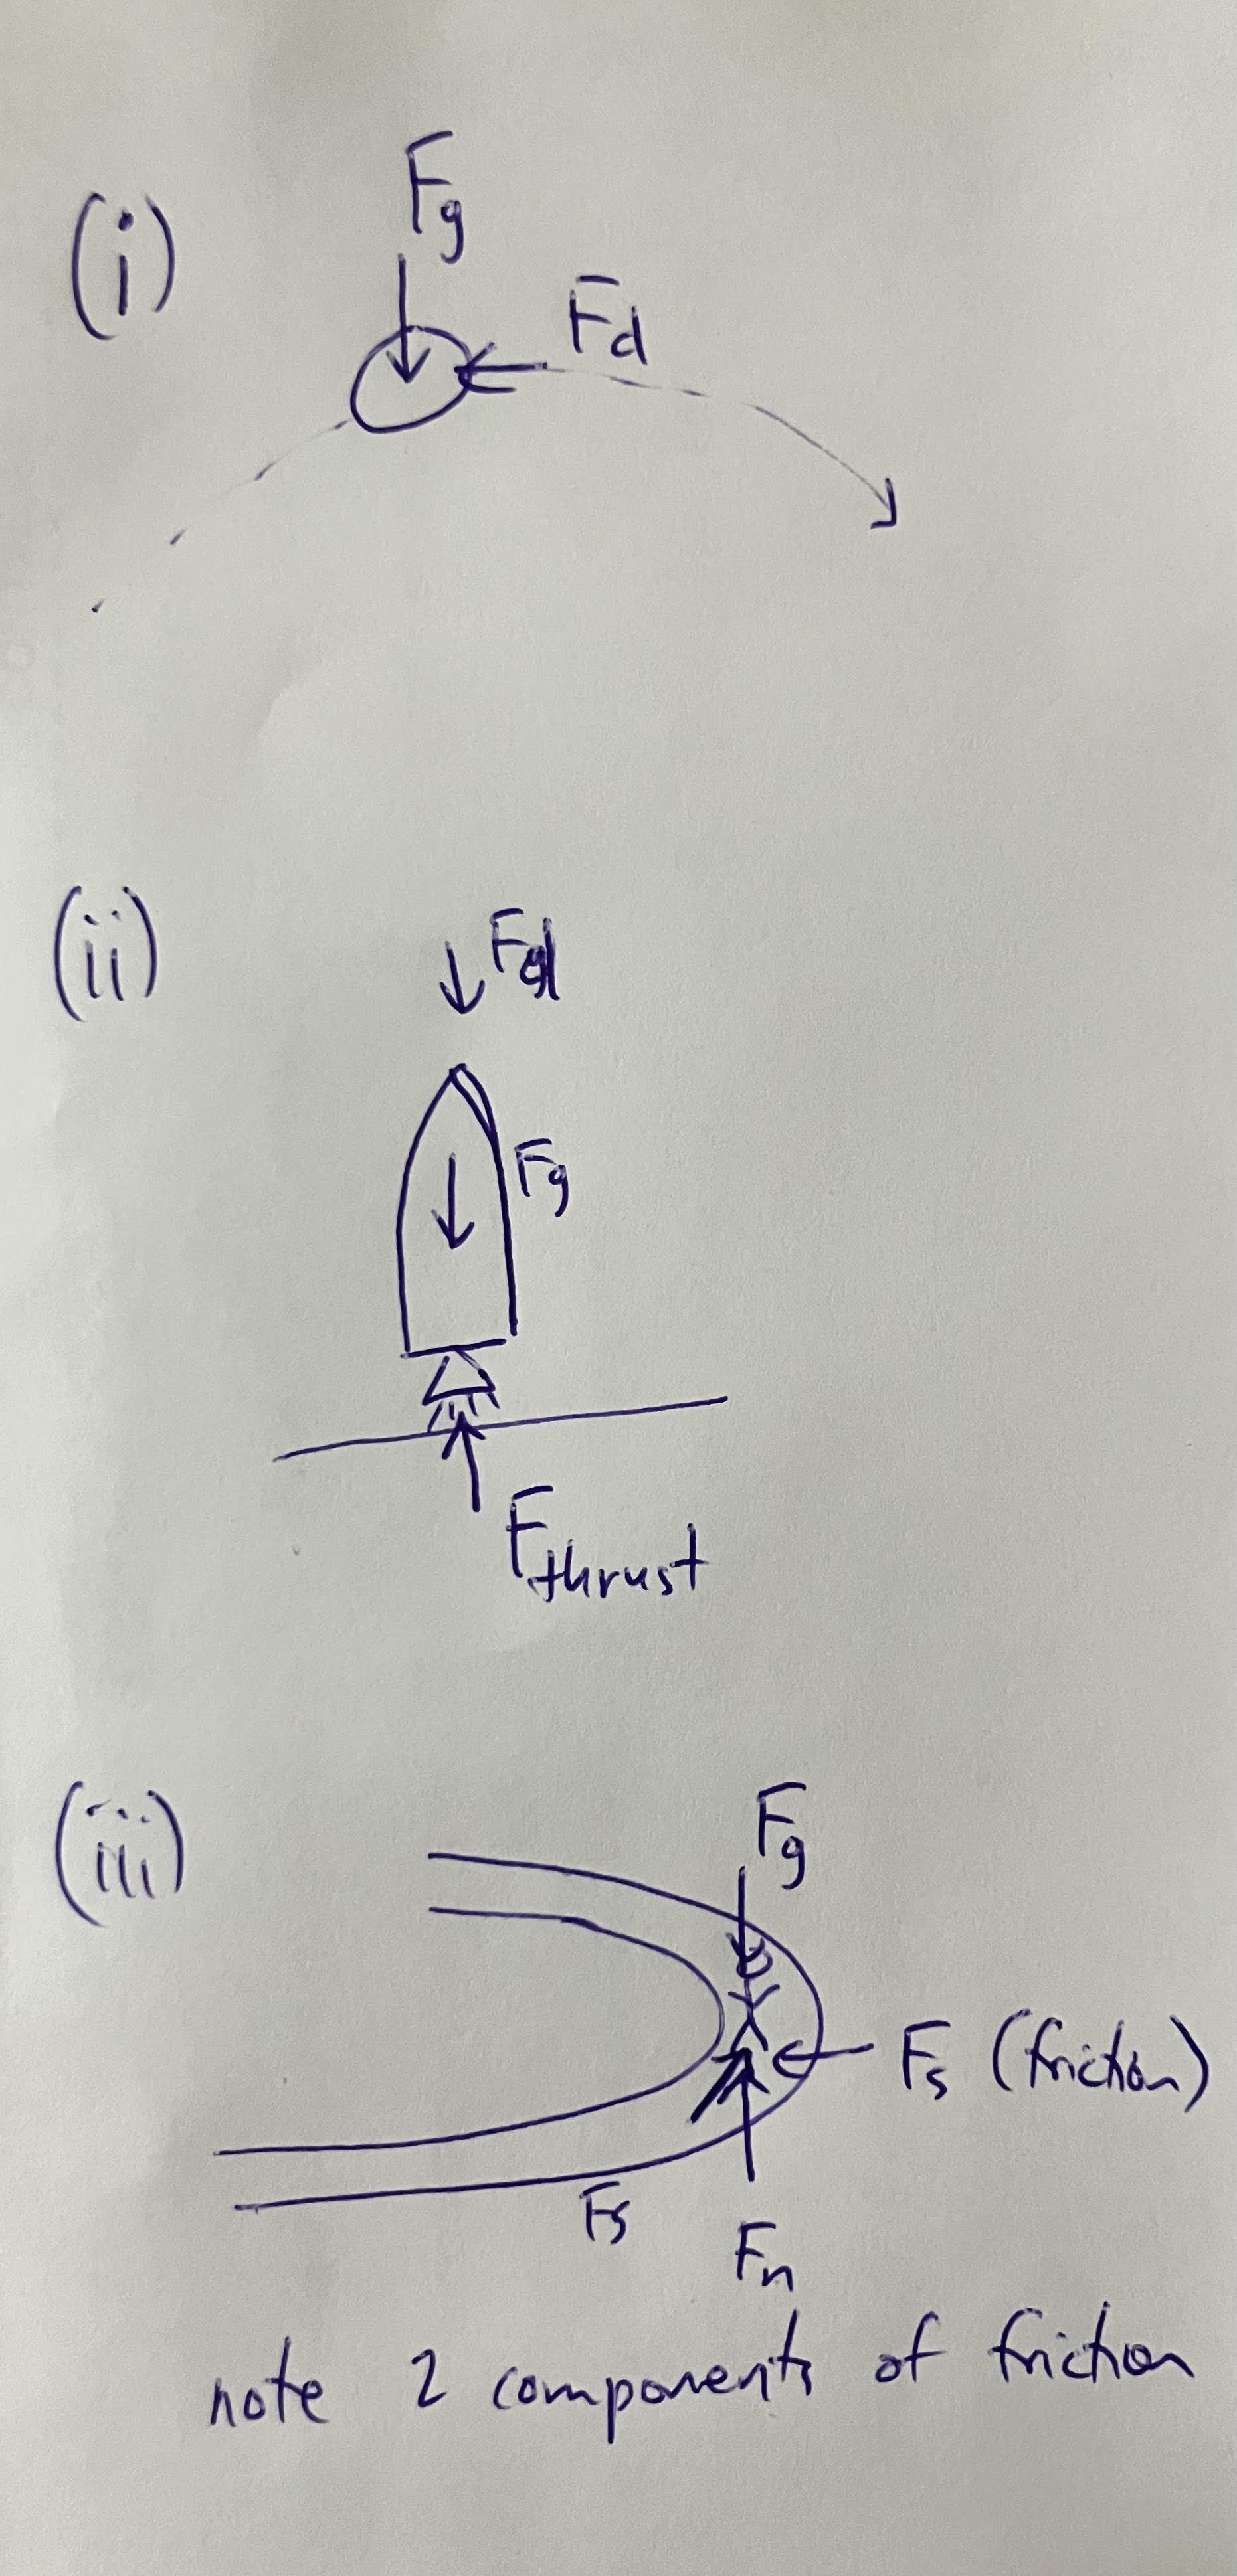 (i)
Fg
Fd
(ii)
Fd
Fg
Fthrust
(iii)
Fg
Fs (friction)
Fs
Fn
note 2 components of friction